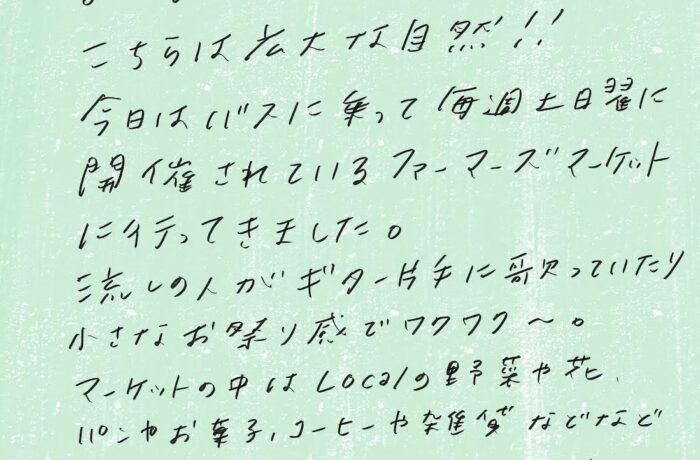 こちらは広大な自然!!
今日はバスに乗って毎週土日曜に
開催されているファーマーズマーケット
に行ってきました。
流しの人がギター片手に歌っていたり
小さなお祭り感でワクワク〜。
マーケットの中はLocalの野菜や花、
パンやお菓子,コーヒーや雑貨などなど